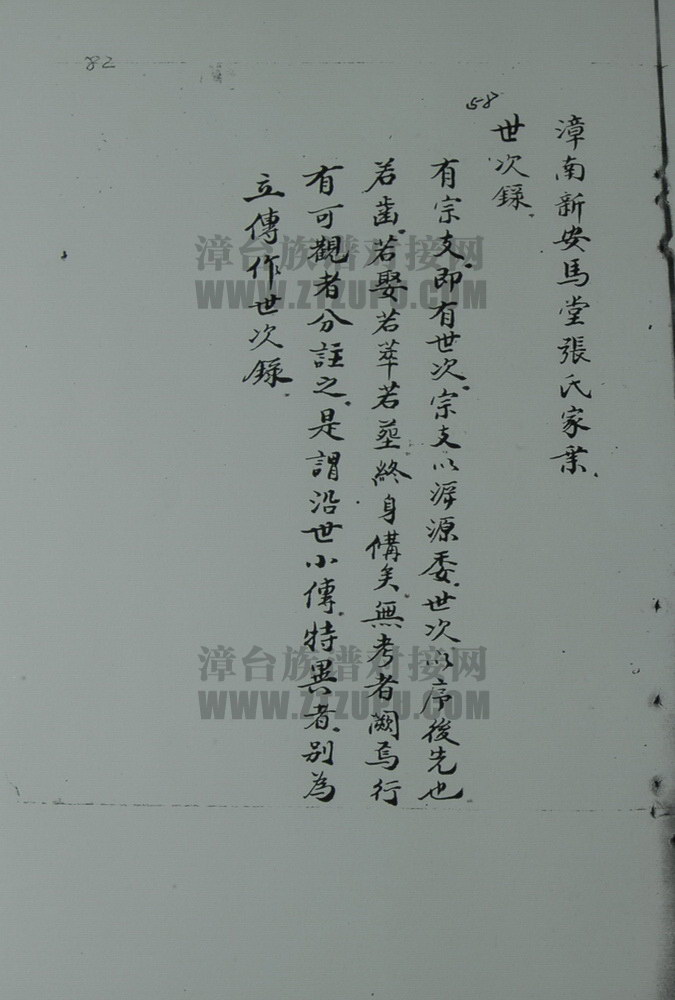 82
58
漳南新安馬堂張氏家乘.
世次錄.
有宗支.即有世次.宗支以泝源委.世次以序後先也
若齒.若娶若卒若塟終身備矣.無考者闕焉行
有可觀者分註之.是謂沿世小傳.特異者.別為
立傳作世次錄.
漳台族谱对接网
WWW.ZTZUPU.COM
漳台族谱对接网
WWW.ZTZUPU.COM